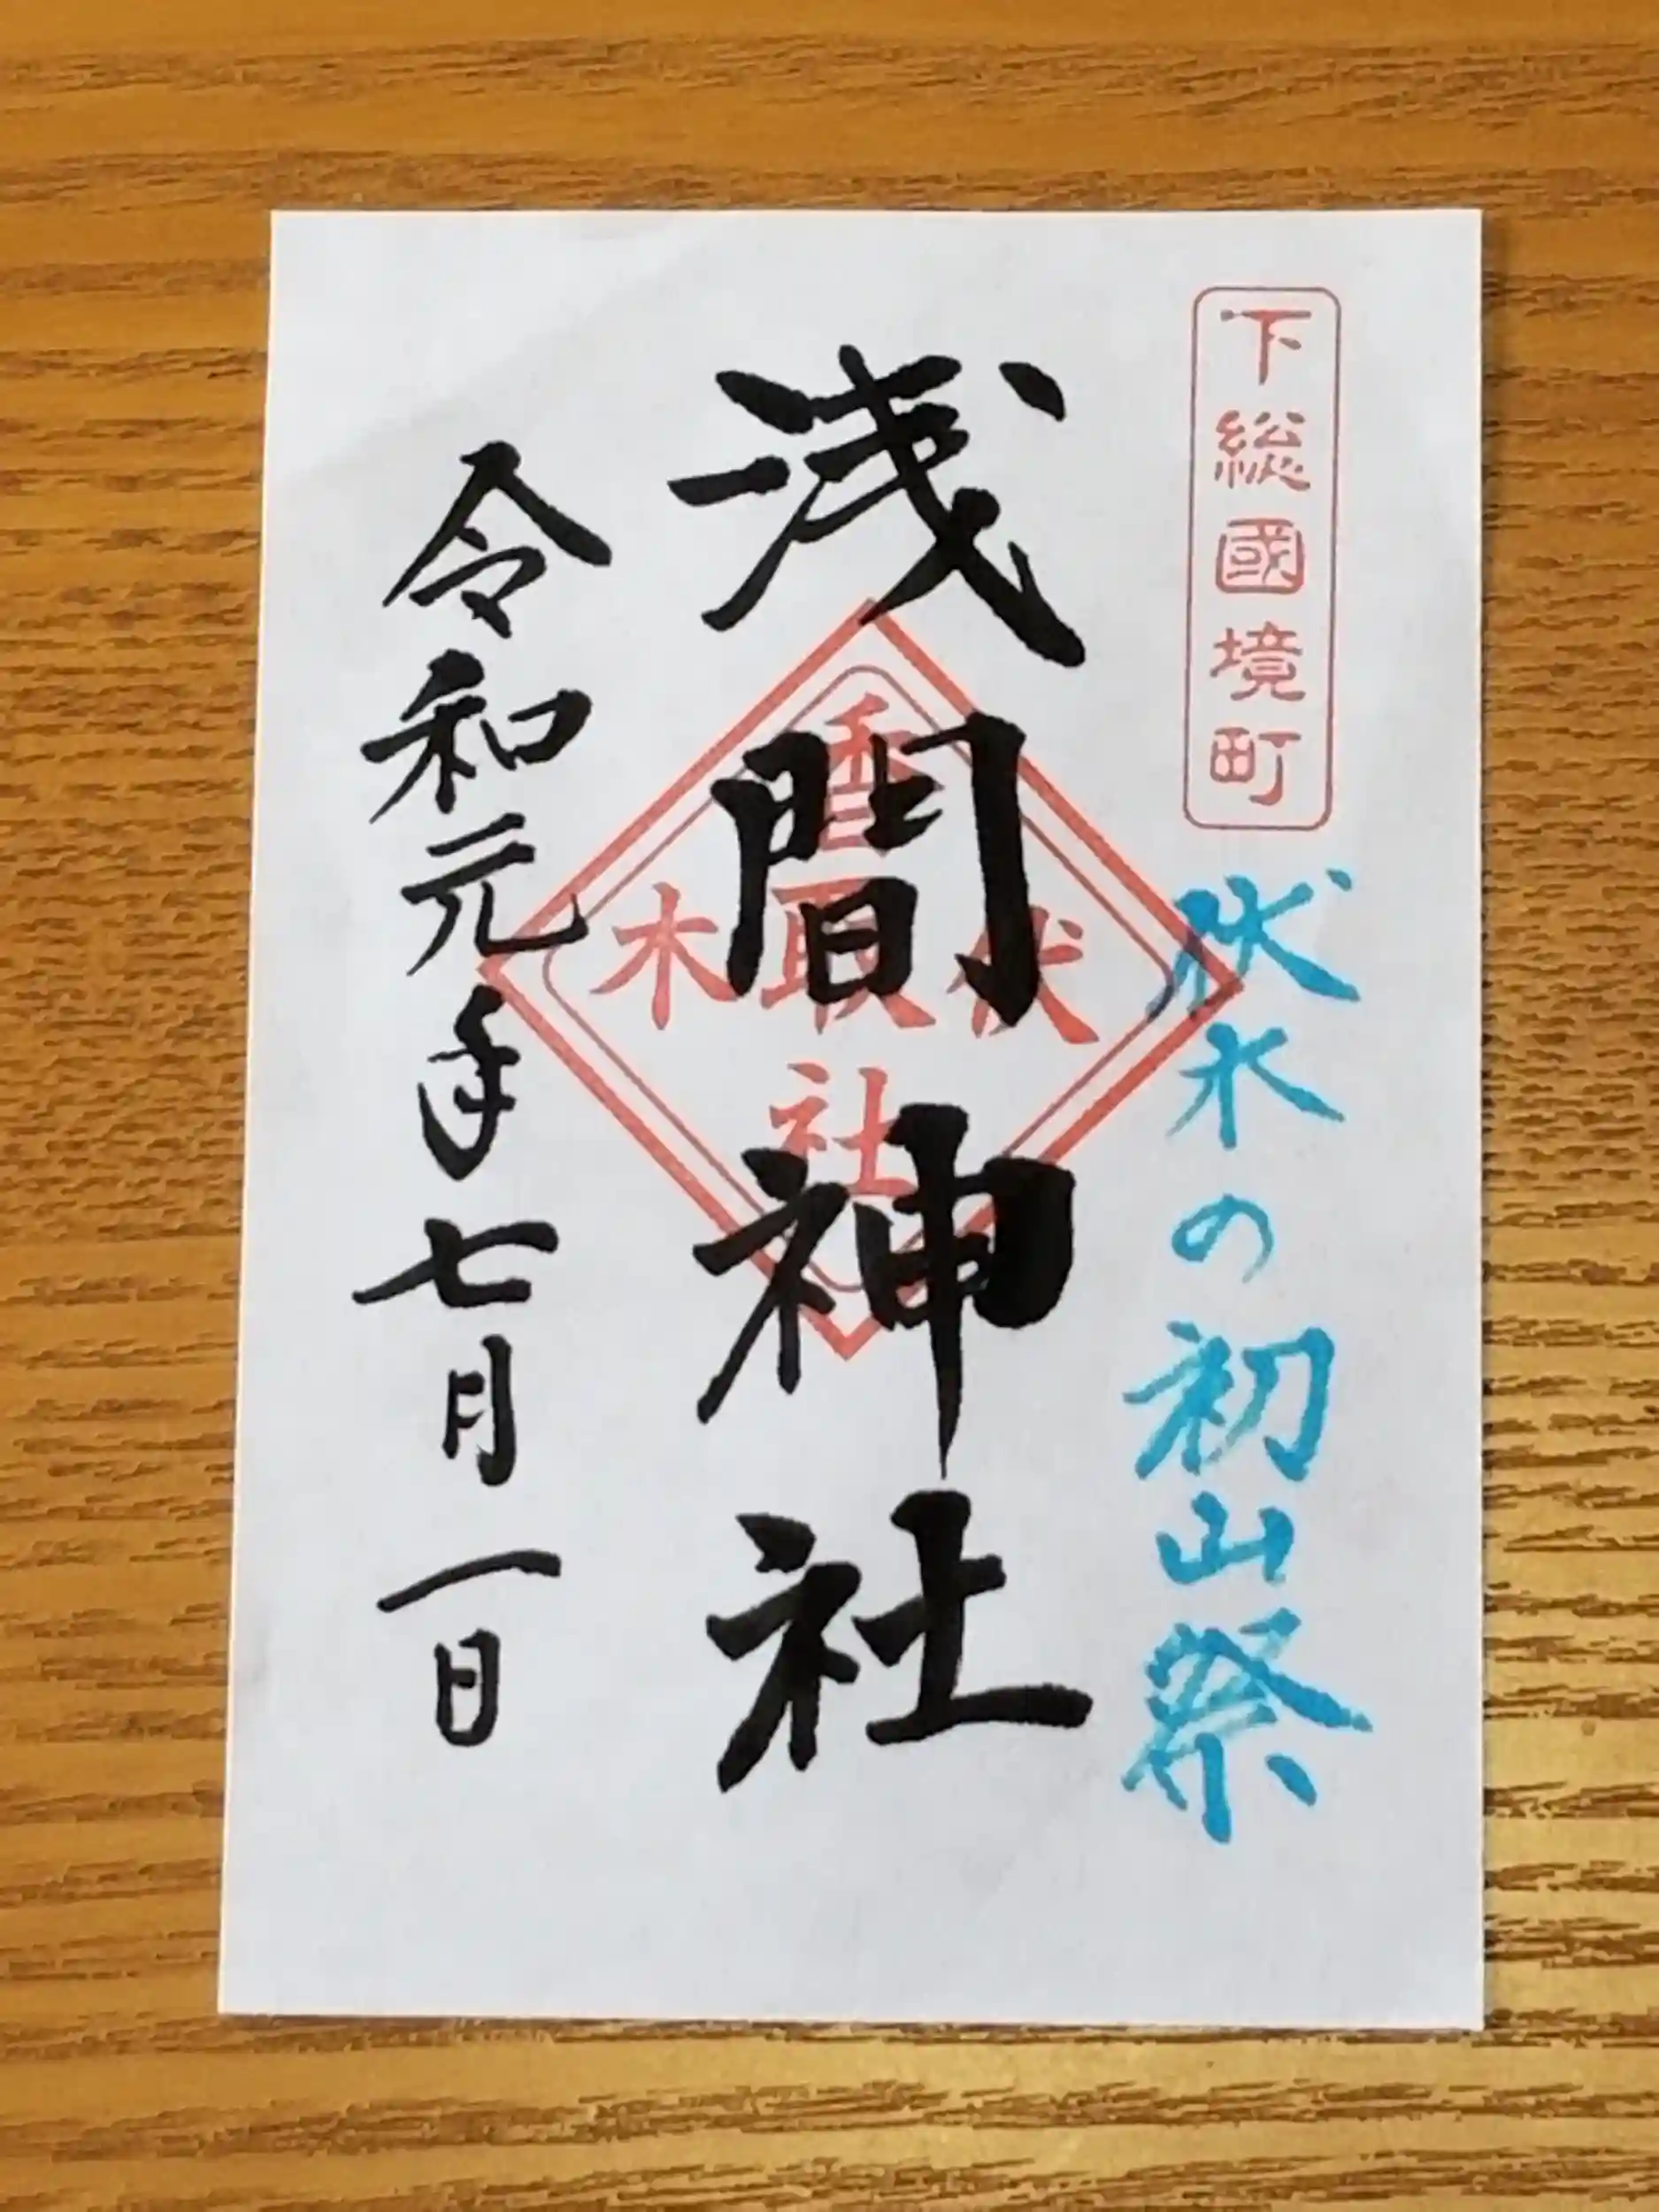 下総國境町
伏木の初山祭
浅間神社
香取社
伏木
令和元年七月一日